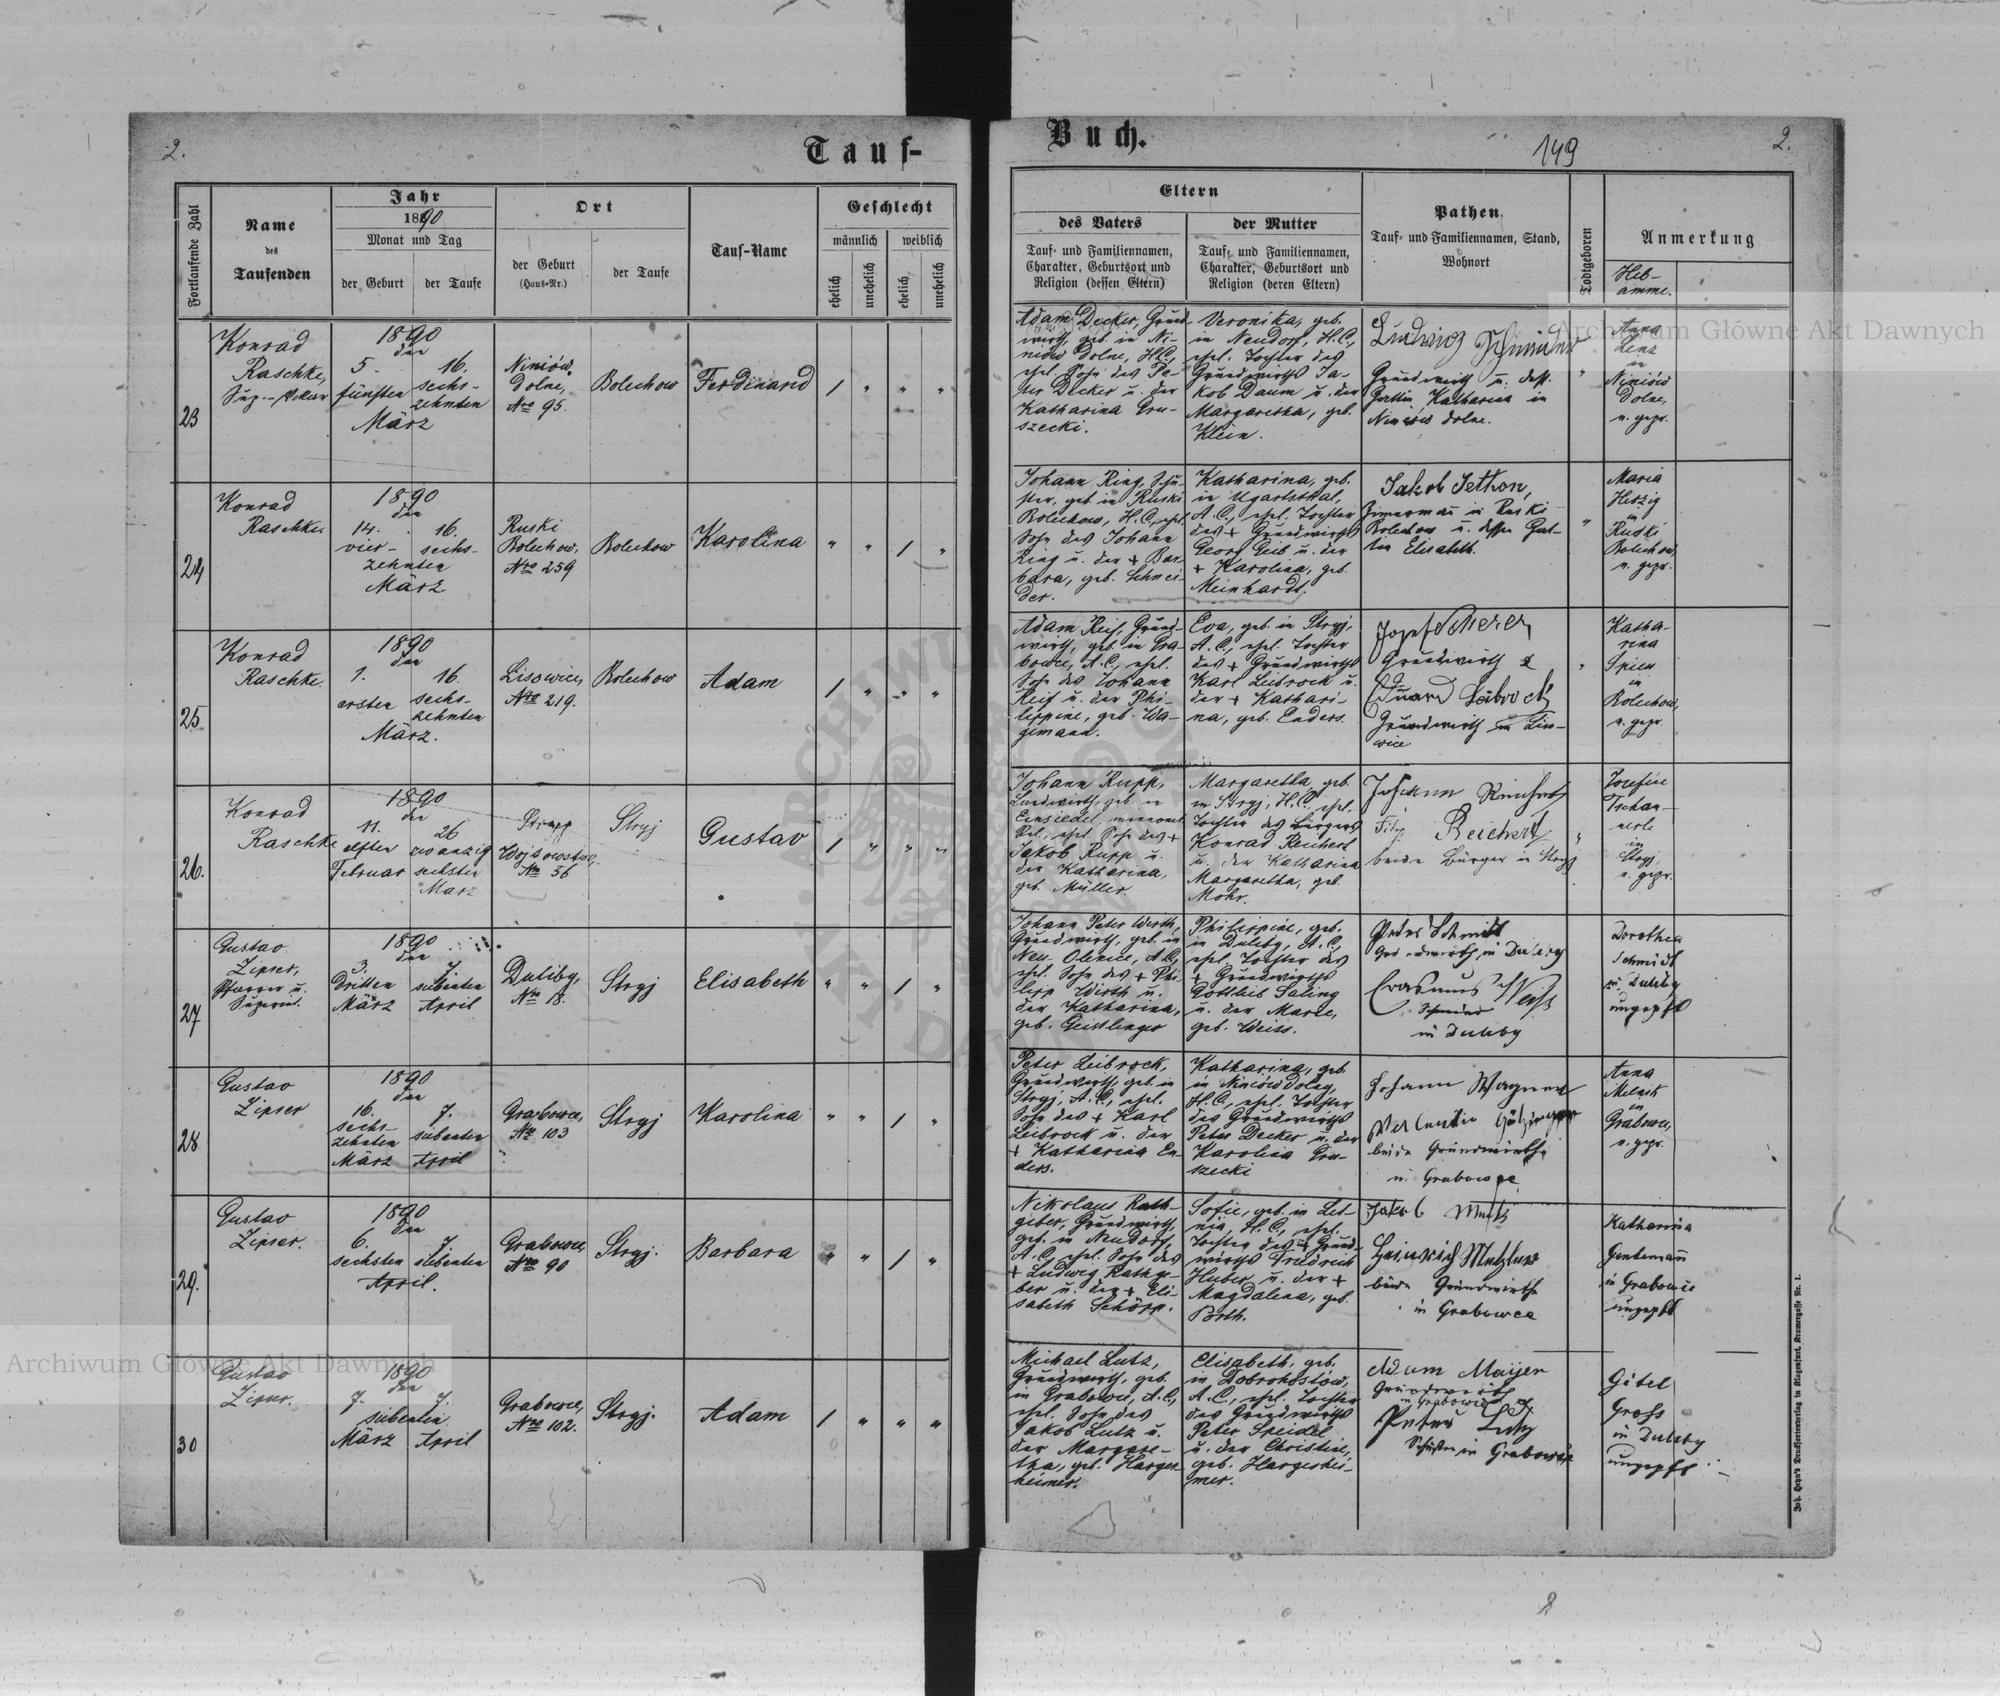 2.
Tauf-
Buch.
149
2.
Fortlaufende Zahl
Name
des
Taufenden
Jahr
1890
Monat und Tag
der Geburt
der Taufe
Ort
der Geburt
(Haus-Nr.)
der Taufe
Tauf-Name
Geschlecht
männlich
weiblich
ehelich
unehelich
ehelich
unehelich
Eltern
des Vaters
Tauf- und Familiennamen,
Charakter, Geburtsort und
Religion (dessen Eltern)
der Mutter
Tauf- und Familiennamen,
Charakter, Geburtsort und
Religion (deren Eltern)
Pathen
Tauf- und Familiennamen, Stand,
Wohnort
Todtgeboren
Anmerkung
Heb-
amme.
23
Konrad
Raschke,
1890
den
5.
fünften
16.
sechs-
zehnten
März
Niniów
Dolne,
Nro 95.
Bolechow
Ferdinand
Adam Decker, Grund-
wirth, geb. in Ni-
niów Dolne, H.C.,
ehel. Sohn des Pe-
ter Decker u. der
Katharina Gru-
szecki.
Veronika, geb.
in Neudorf, H.C.,
ehel. Tochter des
Grundwirths Ja-
kob Daum u. der
Margaretha, geb.
Klein.
Ludwig
Grundwirth u. dess.
Gattin Katharina in
Niniów dolne.
Anna
Lenz
in
Niniów
Dolne,
u. gepr.
24
Konrad
Raschke.
1890
den
14.
vier-
zehnten
16.
sechs-
März
Ruski
Bolechow,
Nro 259
Bolechow
Karolina
Johann Ring, Schu-
ster, geb. in Ruski
Bolechow, H.C., ehel.
Sohn des Johann
Ring u. der + Bar-
bara, geb. Schnei-
der.
Katharina, geb.
in Ugartsthal,
A.C., ehel. Tochter
des + Grundwirths
Georg Geib u. der
+ Karolina, geb.
Meinhardt.
Jakob Jethon,
in Ruski
Bolechow u. dessen Gat-
tin Elisabeth.
Maria
Herzig
in
Ruski
Bolechow,
u. gepr.
25
Konrad
Raschke.
1890
den
1.
ersten
16.
sechs-
zehnten
März.
Lisowice,
Nro 219.
Bolechow
Adam
Adam Reif, Grund-
wirth, geb. in Gra-
bowce, A.C., ehel.
Sohn des Johann
Reif u. der Phi-
lippine, geb. Wa-
gemann.
Eva, geb. in Stryj,
A.C., ehel. Tochter
des + Grundwirths
Karl Leibrock u.
der + Kathari-
na, geb. Enders.
Scherer
Grundwirth
Eduard
Grundwirth in Liso-
wice
Katha-
rina
Spies
in
Bolechow,
u. gepr.
26.
Konrad
Raschke
1890
den
11.
elften
Februar
26
zwanzig
sechsten
März
Nro 56
Stryj
Gustav
Johann Rupp,
Landwirth, geb. in
Einsiedel,
Jakob Rupp u.
der Katharina,
geb. Müller.
Margaretha, geb.
in Stryj, H.C., ehel.
Tochter des Bürgers
Konrad Reichert
u. der Katharina
Margaretha, geb.
Mohr.
Johann
Reichert
beide Bürger in Stryj
Josefine
in
Stryj,
u. gepr.
27
Gustav
Zipser,
Pfarrer u.
Superint.
1890
den
3.
Dritten
März
7.
siebenten
April
Duliby,
Nro 18.
Stryj
Elisabeth
Johann Peter Wirth,
Grundwirth, geb. in
Neu-Olexice, A.C.,
ehel. Sohn des + Phi-
lipp Wirth u.
der Katharina,
geb. Geisslinger
Philippine, geb.
in Duliby, A.C.,
ehel. Tochter des
+ Grundwirths
Gottlieb Saling
u. der Marie,
geb. Weiss.
Peter Schmidt
Grundwirth, in Duliby
Erasmus Weiss
in Duliby
Dorothea
Schmidt
in Duliby
ungeprft
28
Gustav
Zipser
1890
den
16.
sechs-
zehnten
März
7.
siebenten
April
Grabowce,
Nro 103
Stryj
Karolina
Peter Leibrock,
Grundwirth, geb. in
Stryj, A.C., ehel.
Sohn des + Karl
Leibrock u. der
+ Katharina En-
ders.
Katharina, geb.
in Niniów Dolny,
H.C., ehel. Tochter
des Grundwirths
Peter Decker u. der
Karolina Gru-
szecki
Johann Wagner
Valentin
beide Grundwirthe
in Grabowce
Anna
Melnik
in
Grabowce,
u. gepr.
29.
Gustav
Zipser.
1890
den
6.
sechsten
7.
siebenten
April.
Grabowce,
Nro 90
Stryj.
Barbara
Nikolaus Rath-
geber, Grundwirth,
geb. in Neudorf,
A.C., ehel. Sohn des
+ Ludwig Rathge-
ber u. der + Eli-
sabeth Schöpp.
Sofie, geb. in Let-
nia, H.C., ehel.
Tochter des + Grund-
wirths Friedrich
Huber u. der +
Magdalena, geb.
Porth.
Jakob
Heinrich Metzler
beide Grundwirthe
in Grabowce
Katharina
Gentemann
in Grabowce
ungeprft
30
Gustav
Zipser.
1890
den
7.
7.
siebenten
März
April
Grabowce,
Nro 102.
Stryj.
Adam
Michael Lutz,
Grundwirth, geb.
in Grabowce, A.C.,
ehel. Sohn des
Jakob Lutz u.
der Margare-
tha, geb. Harges-
heimer.
Elisabeth, geb.
in Dobrohostów,
A.C., ehel. Tochter
des Grundwirths
Peter Speidel
u. der Christine,
geb. Hargeshei-
mer.
Adam Maijer
Grundwirth
in Grabowce
Peter Lutz
Schuster in Grabowce
Gitel
Gross
in Duliby
ungeprft
Joh. Heyn's Drucksortenverlag in Klagenfurt, Kramergasse Nr. 1.
Archiwum Główne Akt Dawnych
Archiwum Główne Akt Dawnych